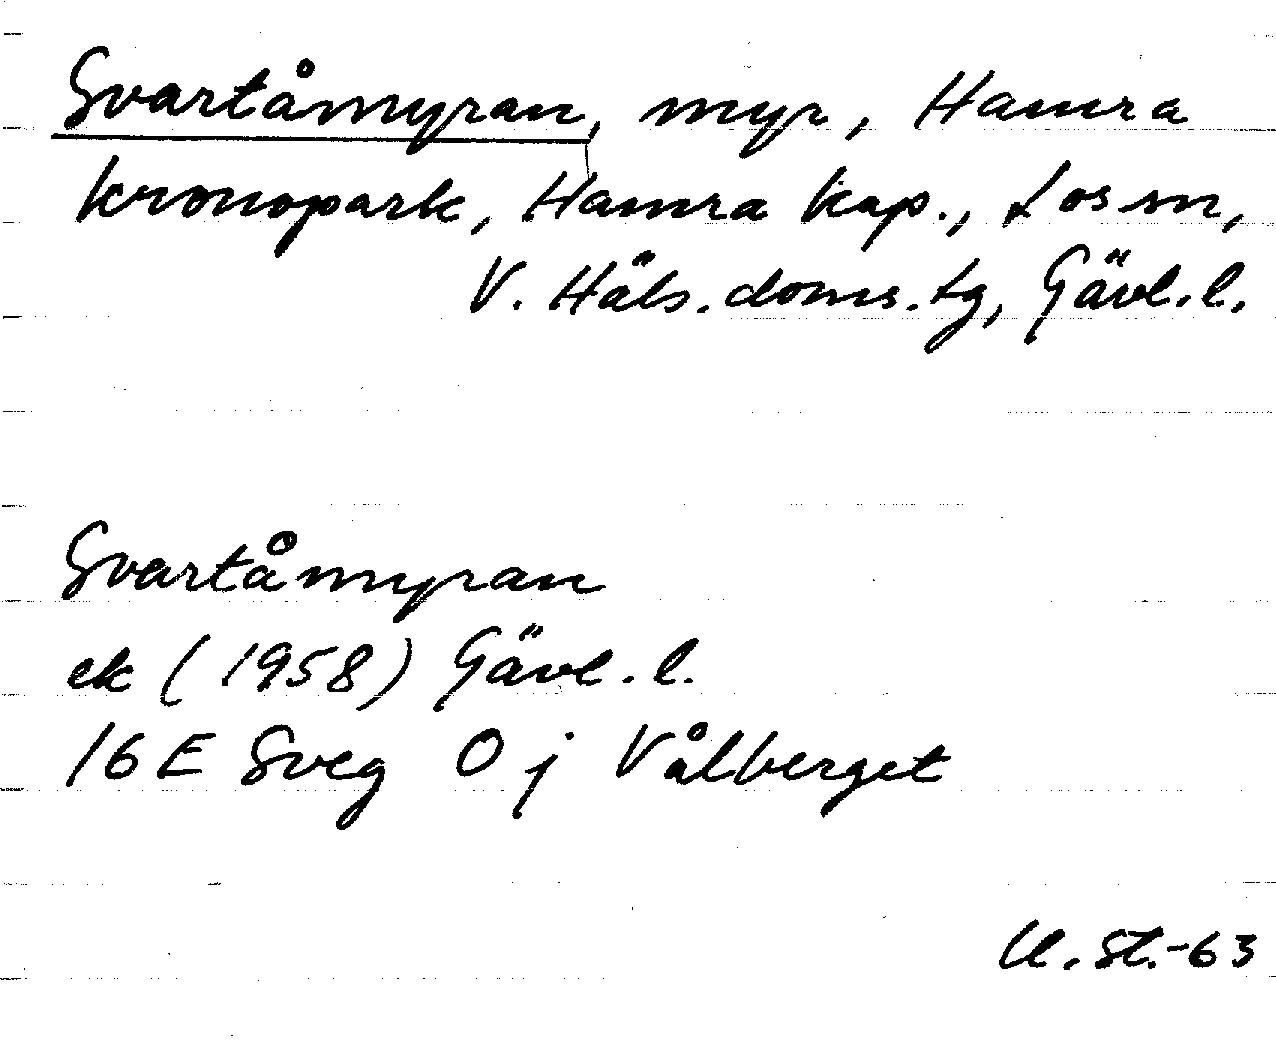 Svartåmyran, myr, Hamra
kronopark, Hamra kap., Los sn,
V. Häls. doms. tg, Gävl. l.
Svartåmyran
ek (1958) Gävl. l.
16 E Sveg O j Vålberget
U. St.-63